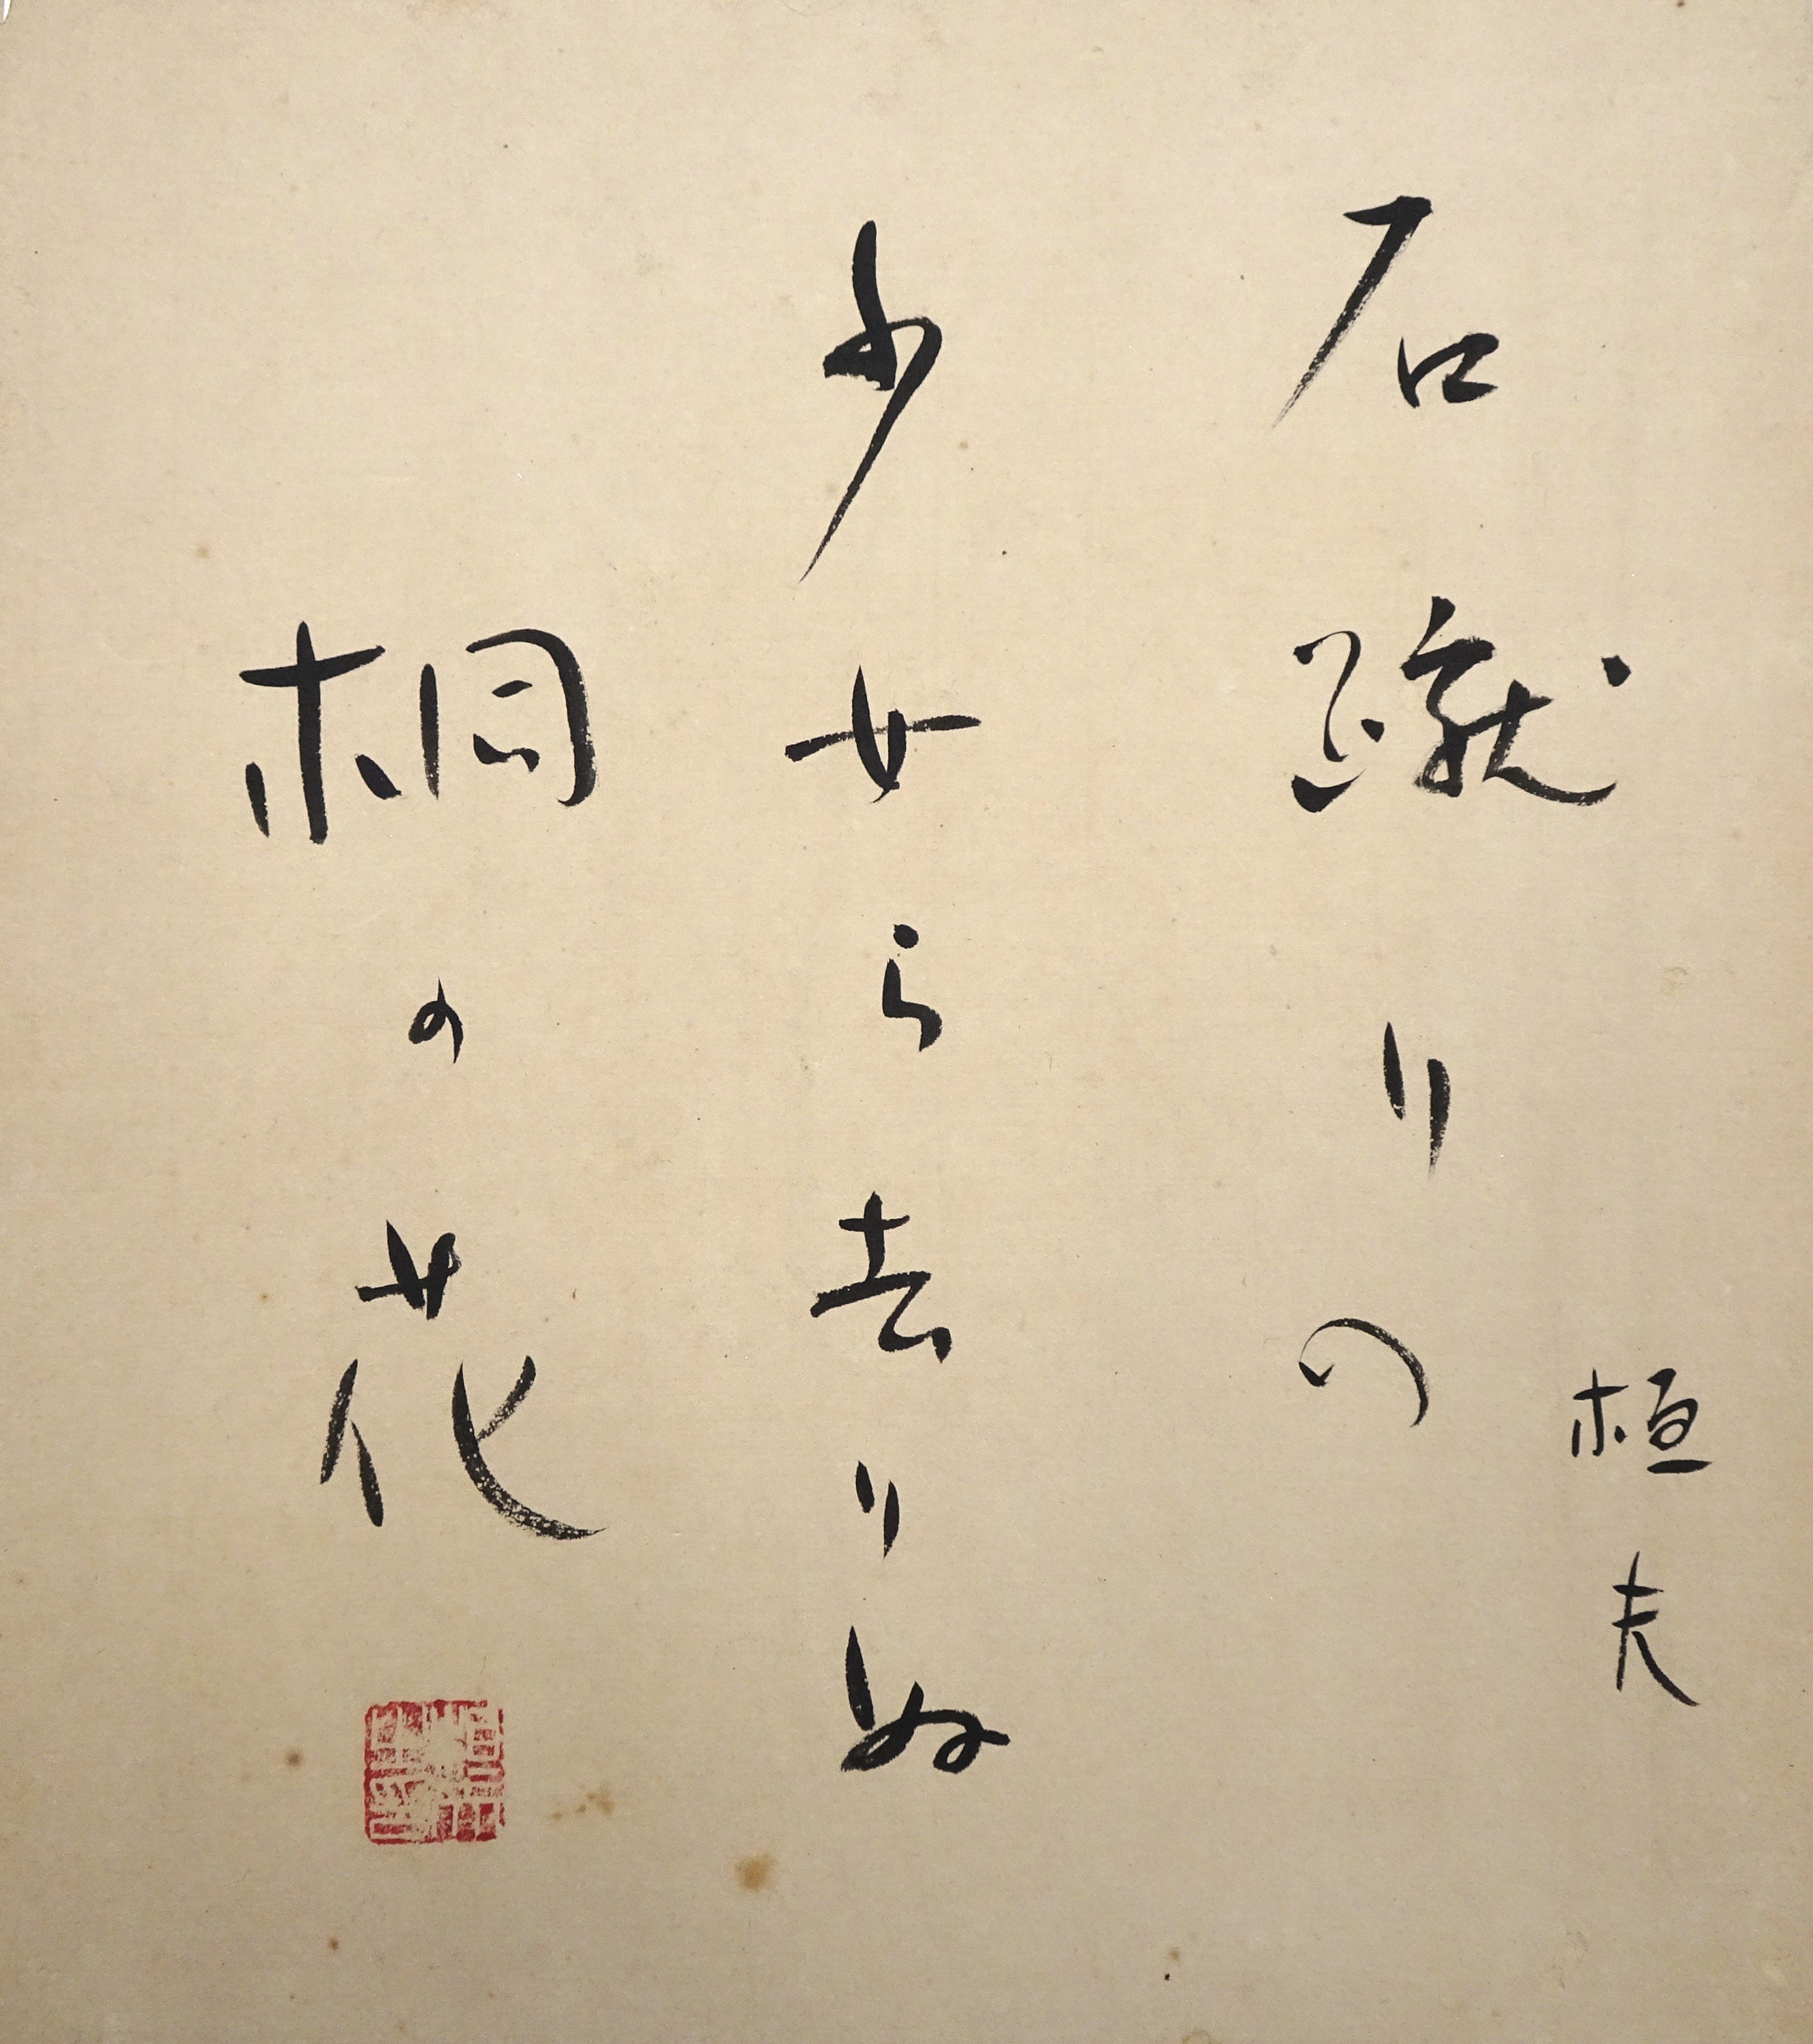 石蹴りの
少女ら去りぬ
桐の花
桓夫